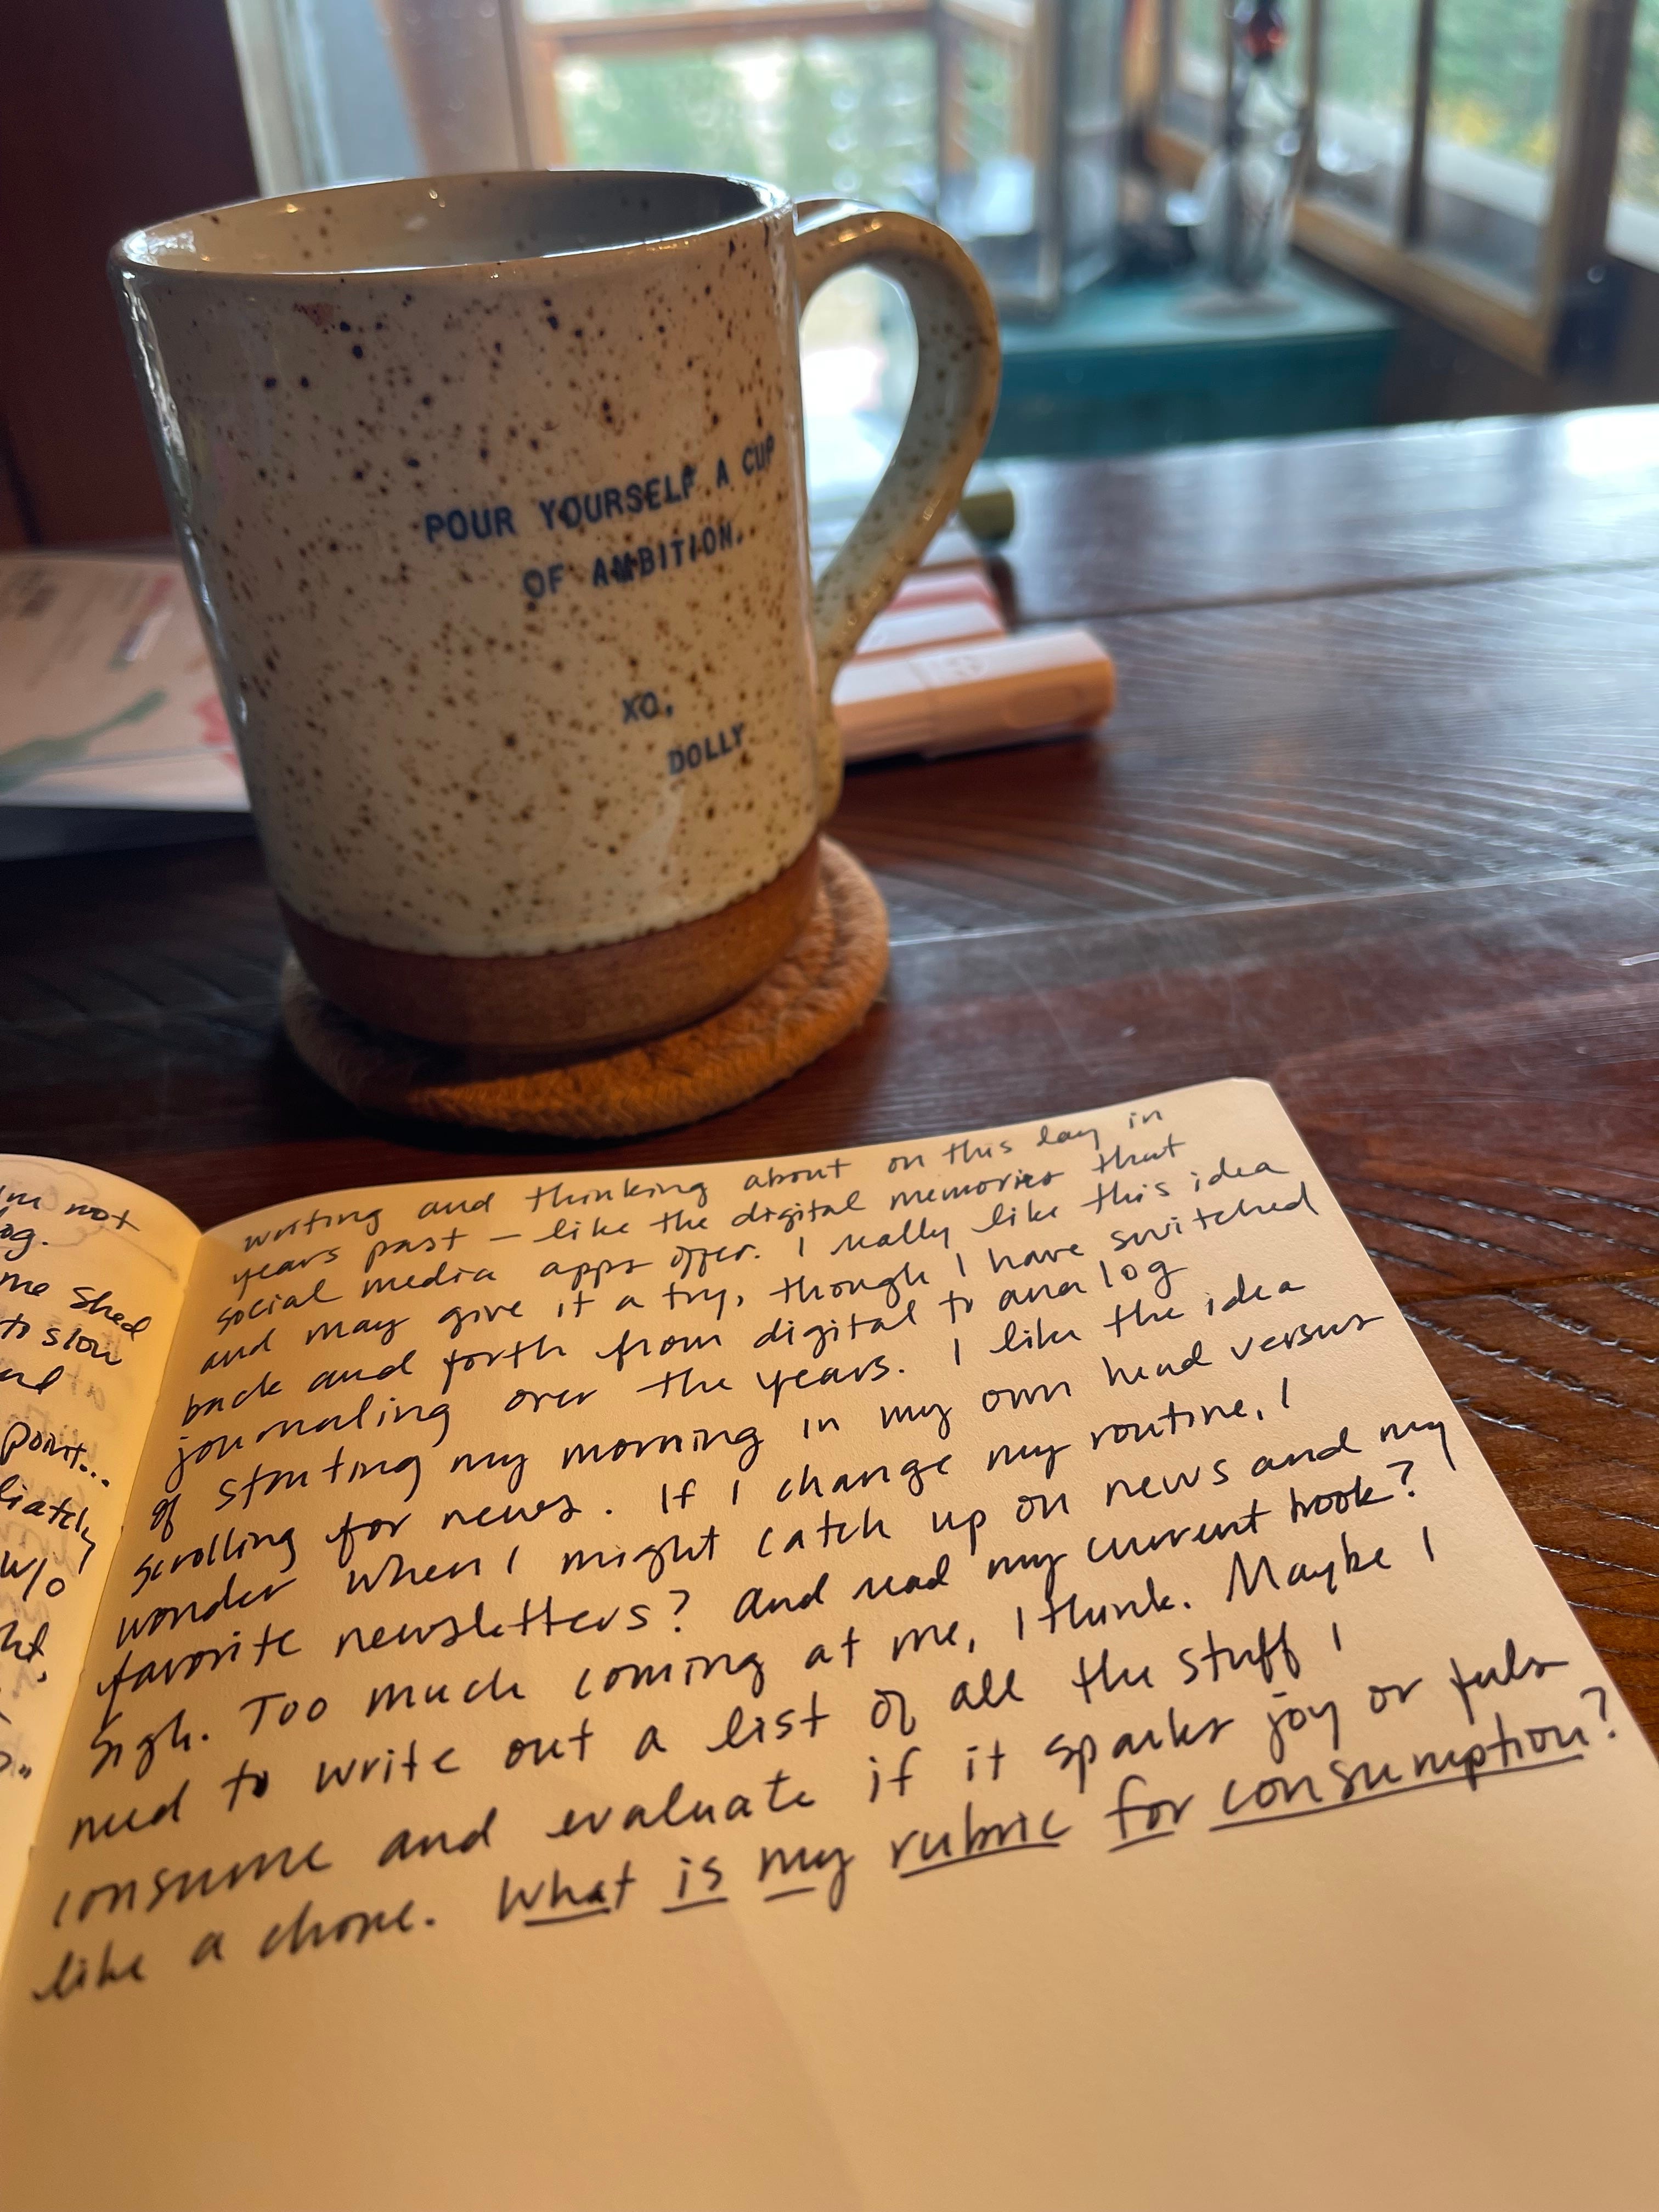 POUR YOURSELF A CUP
OF AMBITION.
XO,
DOLLY
not
og.
me shed
to slow
and
point...
w/o
writing and thinking about on this day in
years past – like the digital memories that
social media apps offer. I really like this idea
and may give it a try, though I have switched
back and forth from digital to analog
journaling over the years. I like the idea
of starting my morning in my own head versus
scrolling for news. If I change my routine, I
wonder when I might catch up on news and my
favorite newsletters? And read my current book?
Sigh. Too much coming at me, I think. Maybe I
need to write out a list of all the stuff I
consume and evaluate if it sparks joy or feels
like a chore. What is my rubric for consumption?